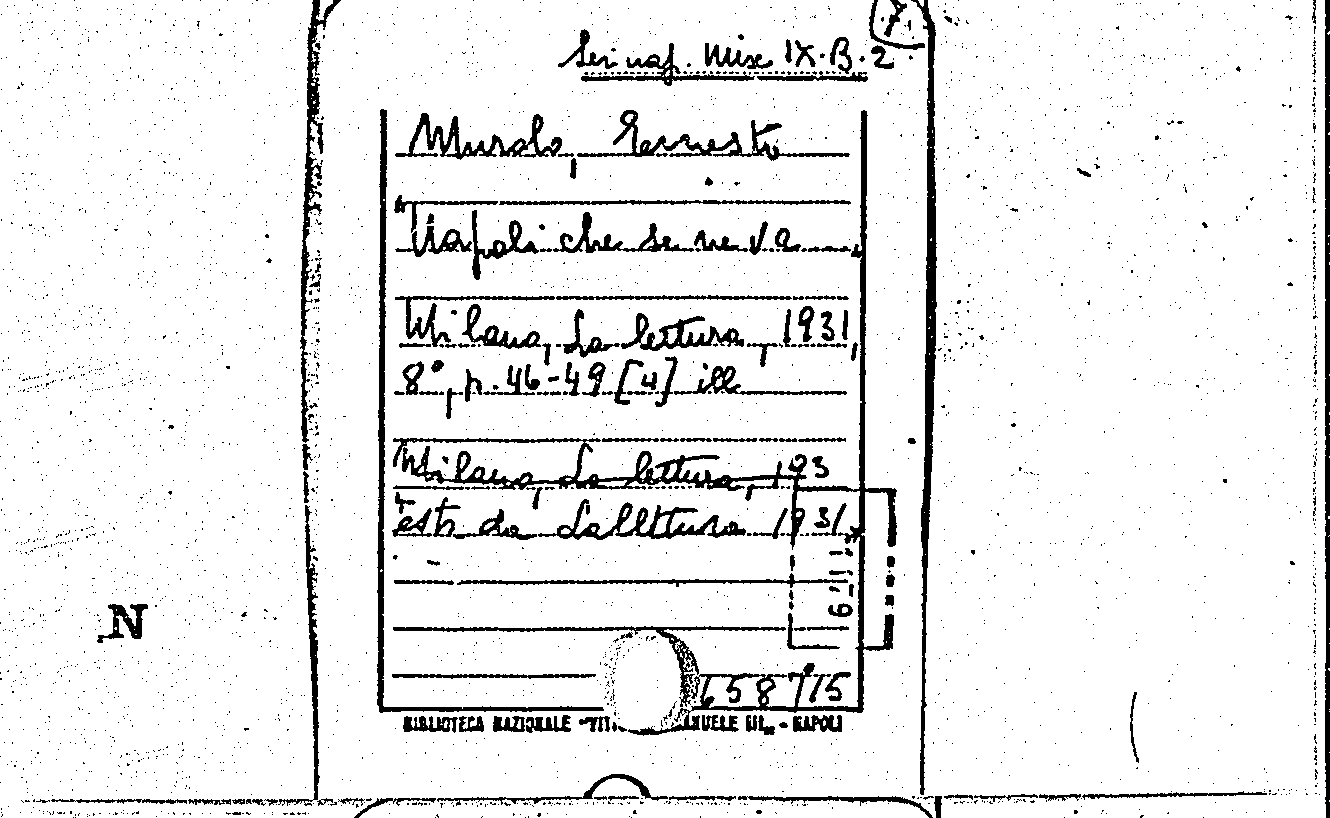 Ser. nap. Misc IX.B.2
Murolo, Ernesto
"Napoli che se ne va
Milano, La lettura, 1931,
8°, p. 46-49 [4] ill
Milano, La lettura, 193
estr. da La lettura 1931
N
658715
BIBLIOTECA NAZIONALE "VITT ANUELE III" - NAPOLI